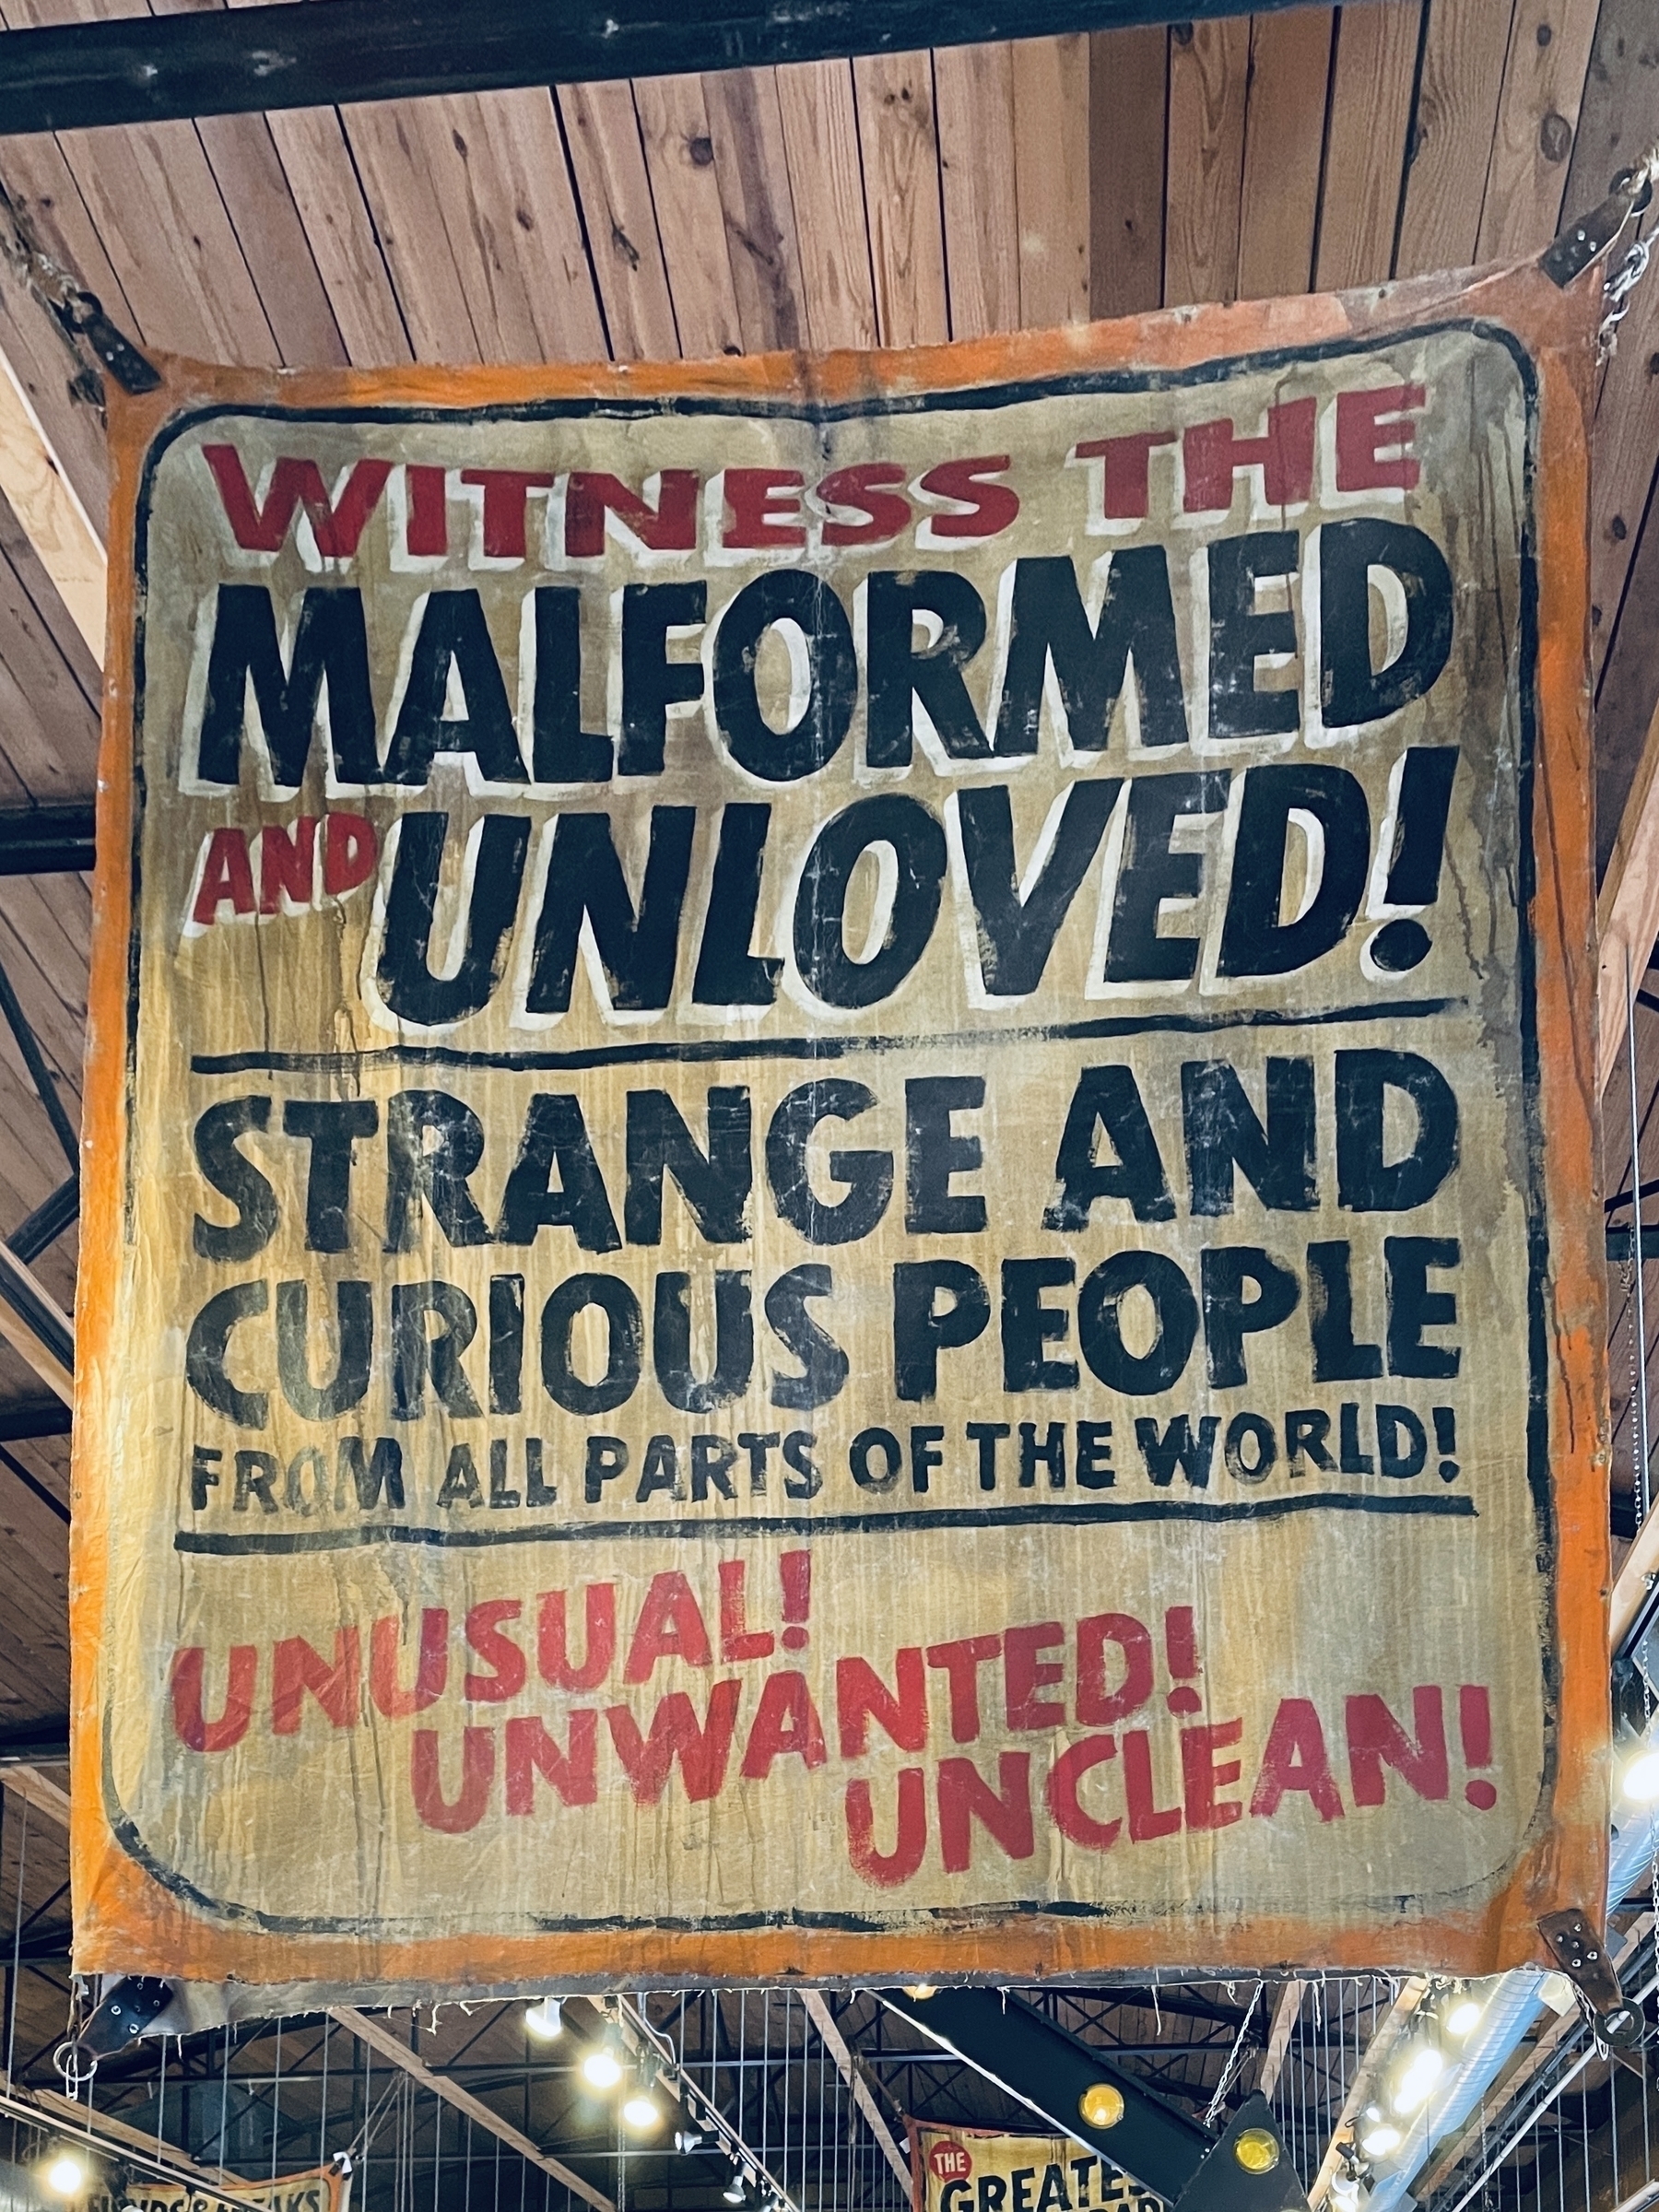 WITNESS THE
MALFORMED
AND UNLOVED!
STRANGE AND
CURIOUS PEOPLE
FROM ALL PARTS OF THE WORLD!
UNUSUAL!
UNWANTED!
UNCLEAN!
THE